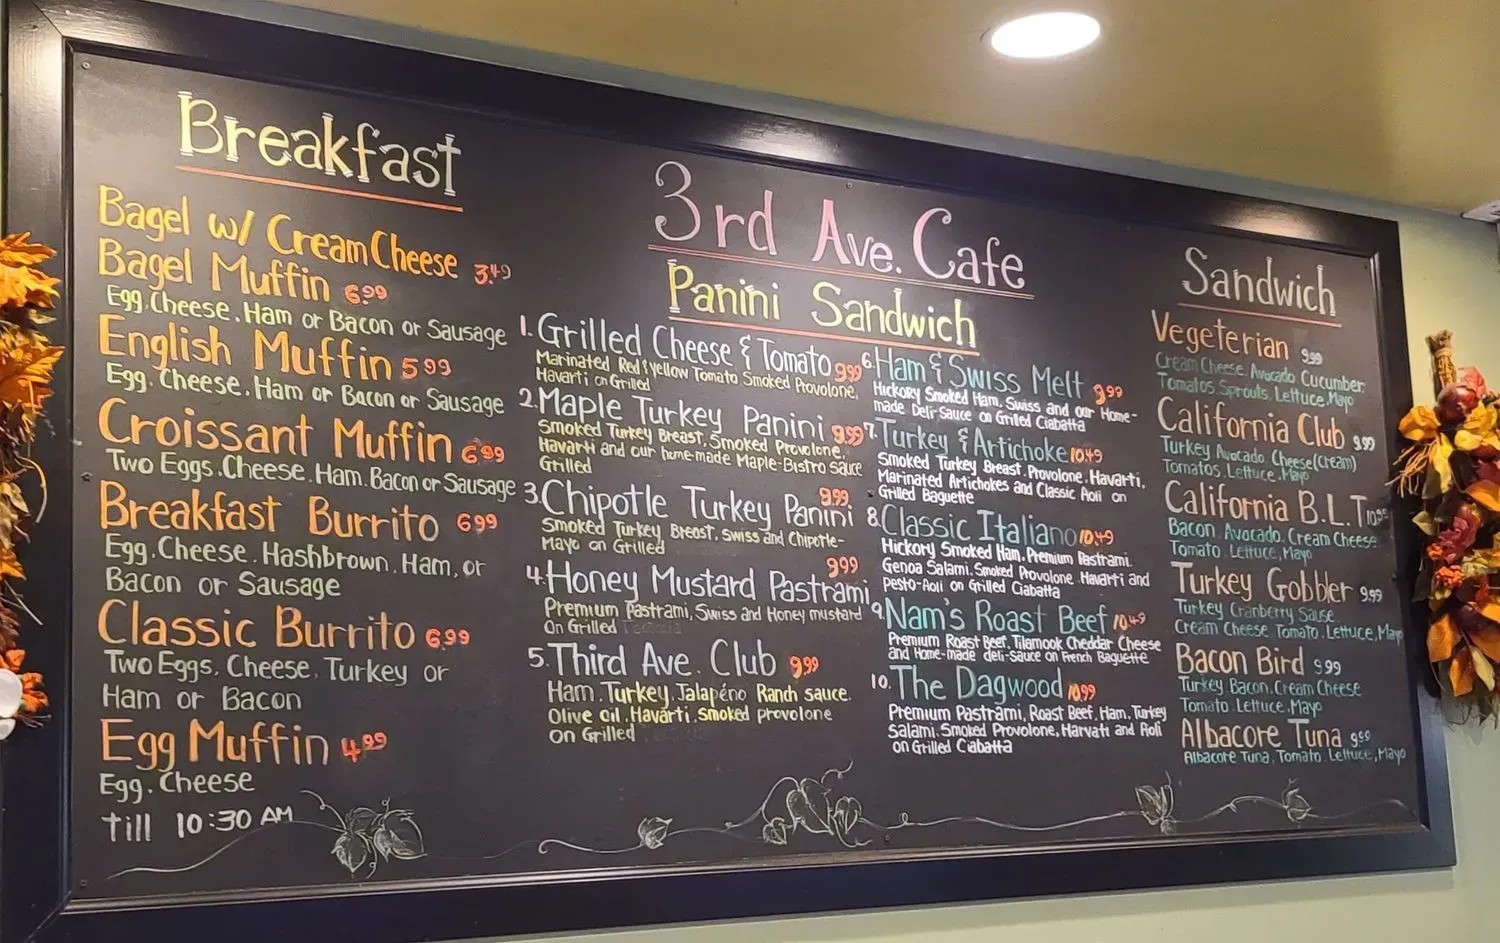 Breakfast
Bagel w/ Cream Cheese 3.49
Bagel Muffin 6.99
Egg, Cheese, Ham or Bacon or Sausage
English Muffin 5.99
Egg, Cheese, Ham or Bacon or Sausage
Croissant Muffin 6.99
Two Eggs, Cheese, Ham, Bacon or Sausage
Breakfast Burrito 6.99
Egg, Cheese, Hashbrown, Ham, or
Bacon or Sausage
Classic Burrito 6.99
Two Eggs, Cheese, Turkey or
Ham or Bacon
Egg Muffin 4.99
Egg, Cheese
Till 10:30 AM
3rd Ave. Cafe
Panini Sandwich
1. Grilled Cheese & Tomato 9.99
Marinated Red & yellow Tomato Smoked Provolone,
Havarti on Grilled
2. Maple Turkey Panini 9.99
Smoked Turkey Breast, Smoked Provolone,
Havarti and our home-made Maple-Bistro sauce
Grilled
3. Chipotle Turkey Panini 9.99
Smoked Turkey, Breast, Swiss and Chipotle-
Mayo on Grilled
4. Honey Mustard Pastrami 9.99
Premium Pastrami, Swiss and Honey mustard
On Grilled
5. Third Ave. Club 9.99
Ham, Turkey, Jalapéno Ranch sauce.
Olive oil, Havarti, Smoked provolone
on Grilled
6. Ham & Swiss Melt 9.99
Hickory Smoked Ham, Swiss and our Home-
made Deli-Sauce on Grilled Ciabatta
7. Turkey & Artichoke 10.49
Smoked Turkey Breast, Provolone, Havarti,
Marinated Artichokes and Classic Aoli on
Grilled Baguette
8. Classic Italiano 10.49
Hickory Smoked Ham, Premium Pastrami,
Genoa Salami, Smoked Provolone Havarti and
Pesto-Aoli on Grilled Ciabatta
9. Nam's Roast Beef 10.49
Premium Roast Beef, Tilamook Cheddar Cheese
and Home-made deli-sauce on French Baguette
10. The Dagwood 10.99
Premium Pastrami, Roast Beef, Ham, Turkey
Salami, Smoked Provolone, Harvati and Aoli
on Grilled Ciabatta
Sandwich
Vegeterian 9.99
Cream Cheese, Avocado Cucumber,
Tomatos, Sprouts, Lettuce, Mayo
California Club 9.99
Turkey, Avocado, Cheese (cream)
Tomatos, Lettuce, Mayo
California B.L.T
Bacon, Avocado, Cream Cheese,
Tomato, Lettuce, Mayo
Turkey Gobbler 9.99
Turkey Cranberry Sause,
Cream Cheese Tomato, Lettuce, Mayo
Bacon Bird 9.99
Turkey, Bacon, Cream Cheese
Tomato, Lettuce, Mayo
Albacore Tuna 9.99
Albacore Tuna, Tomato, Lettuce, Mayo